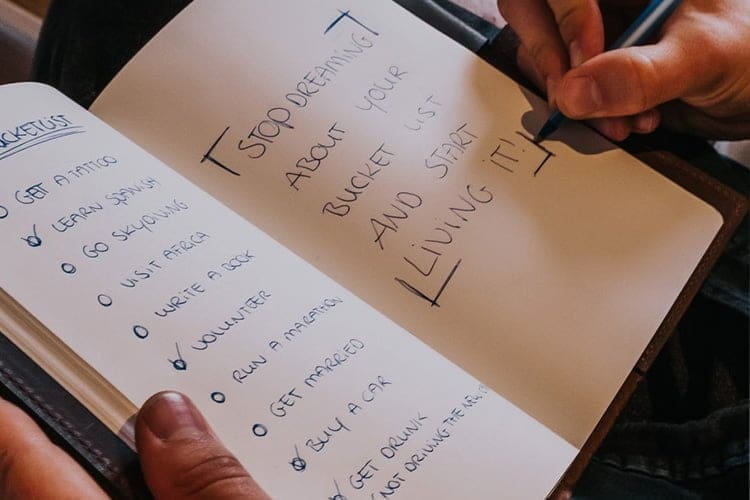 BUCKETLIST
GET A TATTOO
LEARN SPANISH
GO SKYDIVING
VISIT AFRICA
WRITE A BOOK
VOLUNTEER
RUN A MARATHON
GET MARRIED
BUY A CAR
GET DRUNK
(NOT DRIVING THE NEW
STOP DREAMING
ABOUT YOUR
BUCKET LIST
AND START
LIVING IT!